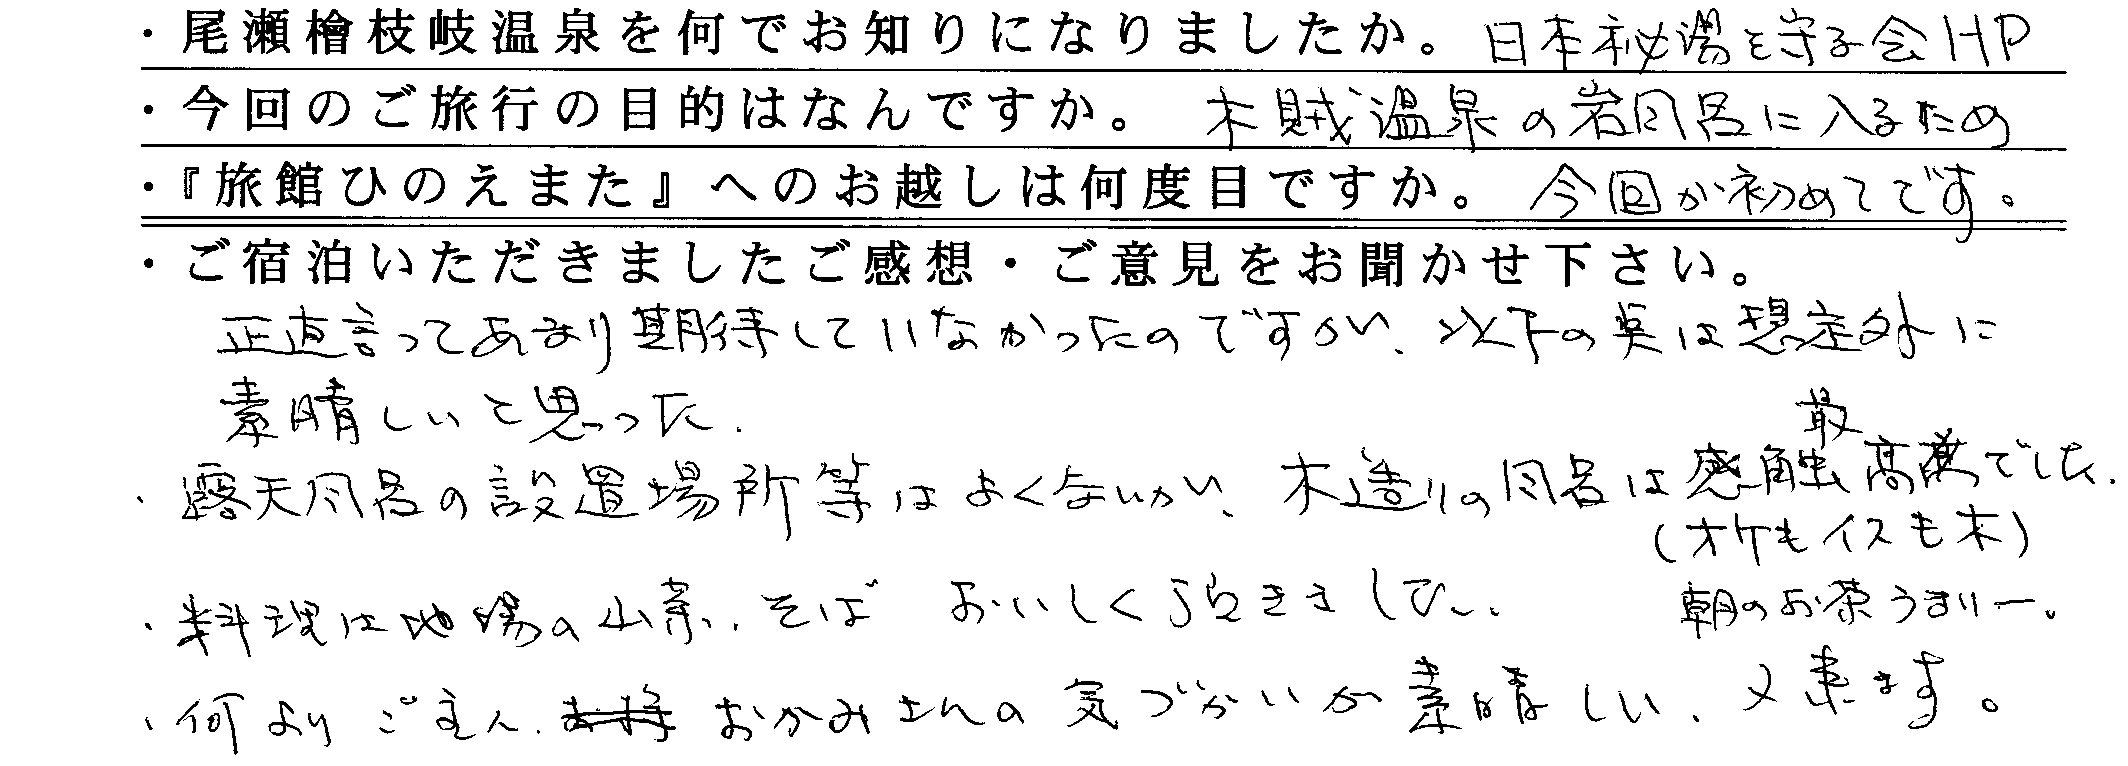 ・尾瀬檜枝岐温泉を何でお知りになりましたか。 日本秘湯を守る会HP
・今回のご旅行の目的はなんですか。 木賊温泉の岩風呂に入るため
・『旅館ひのえまた』へのお越しは何度目ですか。 今回が初めてです。
・ご宿泊いただきましたご感想・ご意見をお聞かせ下さい。
正直言ってあまり期待していなかったのですが、以下の点は想定外に
素晴しいと思った.
・露天風呂の設置場所等はよくないが、木造りの風呂は感触最高でした.
(オケもイスも木)
・料理は地場の山菜、そば おいしく頂きました.
朝のお茶うまいー。
・何よりご主人、おかみさんの気づかいが素晴しい、又来ます。